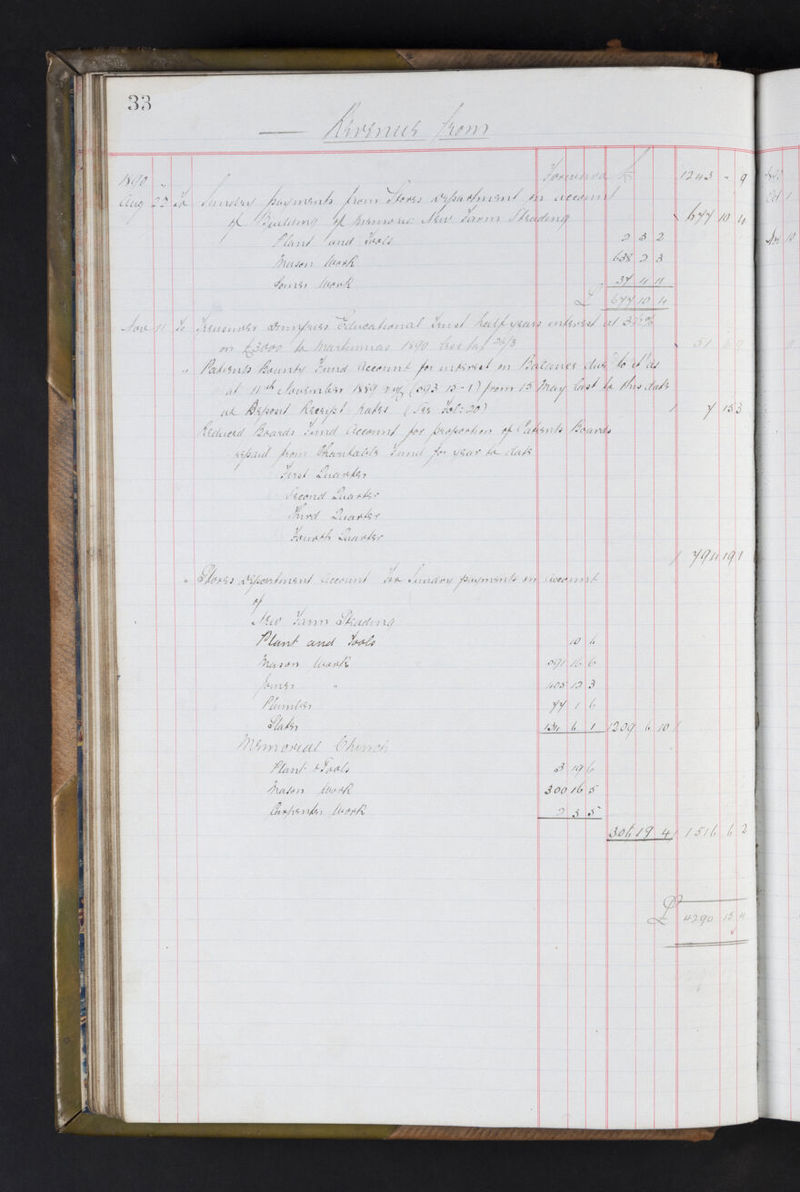 33
Revenue from
1890
Forward £ 1243 - 9
Aug 22 To Sundry payments from Stores department on account
of Building of Memorial New Farm Steading 677 10 4
Plant and Tools 2 3 2
Mason Work 638 2 3
Joiner Work 37 4 11
£ 677 10 4
Nov 11 To Treasurer Dumfries Educational Trust half years interest at
on £3000 to Martinmas 1890 less tax 51
" Patients Bounty Fund Account for interest on Balance due to it as
at 11th November 1889 from 15 May last to this date
at Deposit Receipt Rates (See Fol: 20) 7 15 3
Reduced Boards Fund Account for proportion of Patients Boards
repaid from Charitable Fund for year to date
First Quarter
Second Quarter
Third Quarter
Fourth Quarter
794 19 1
" Stores department Account for Sundry payments on account
of
New Farm Steading
Plant and Tools 10 6
Mason Work 591 16 6
Joiner " 405 12 3
Plumber 77 1 6
Slater 134 6 1 1209 6 10
Memorial Church
Plant & Tools 3 19 6
Mason Work 300 16 5
Carpenter Work 2 3 5
306 19 4 1516 6 2
£ 4290 15 4